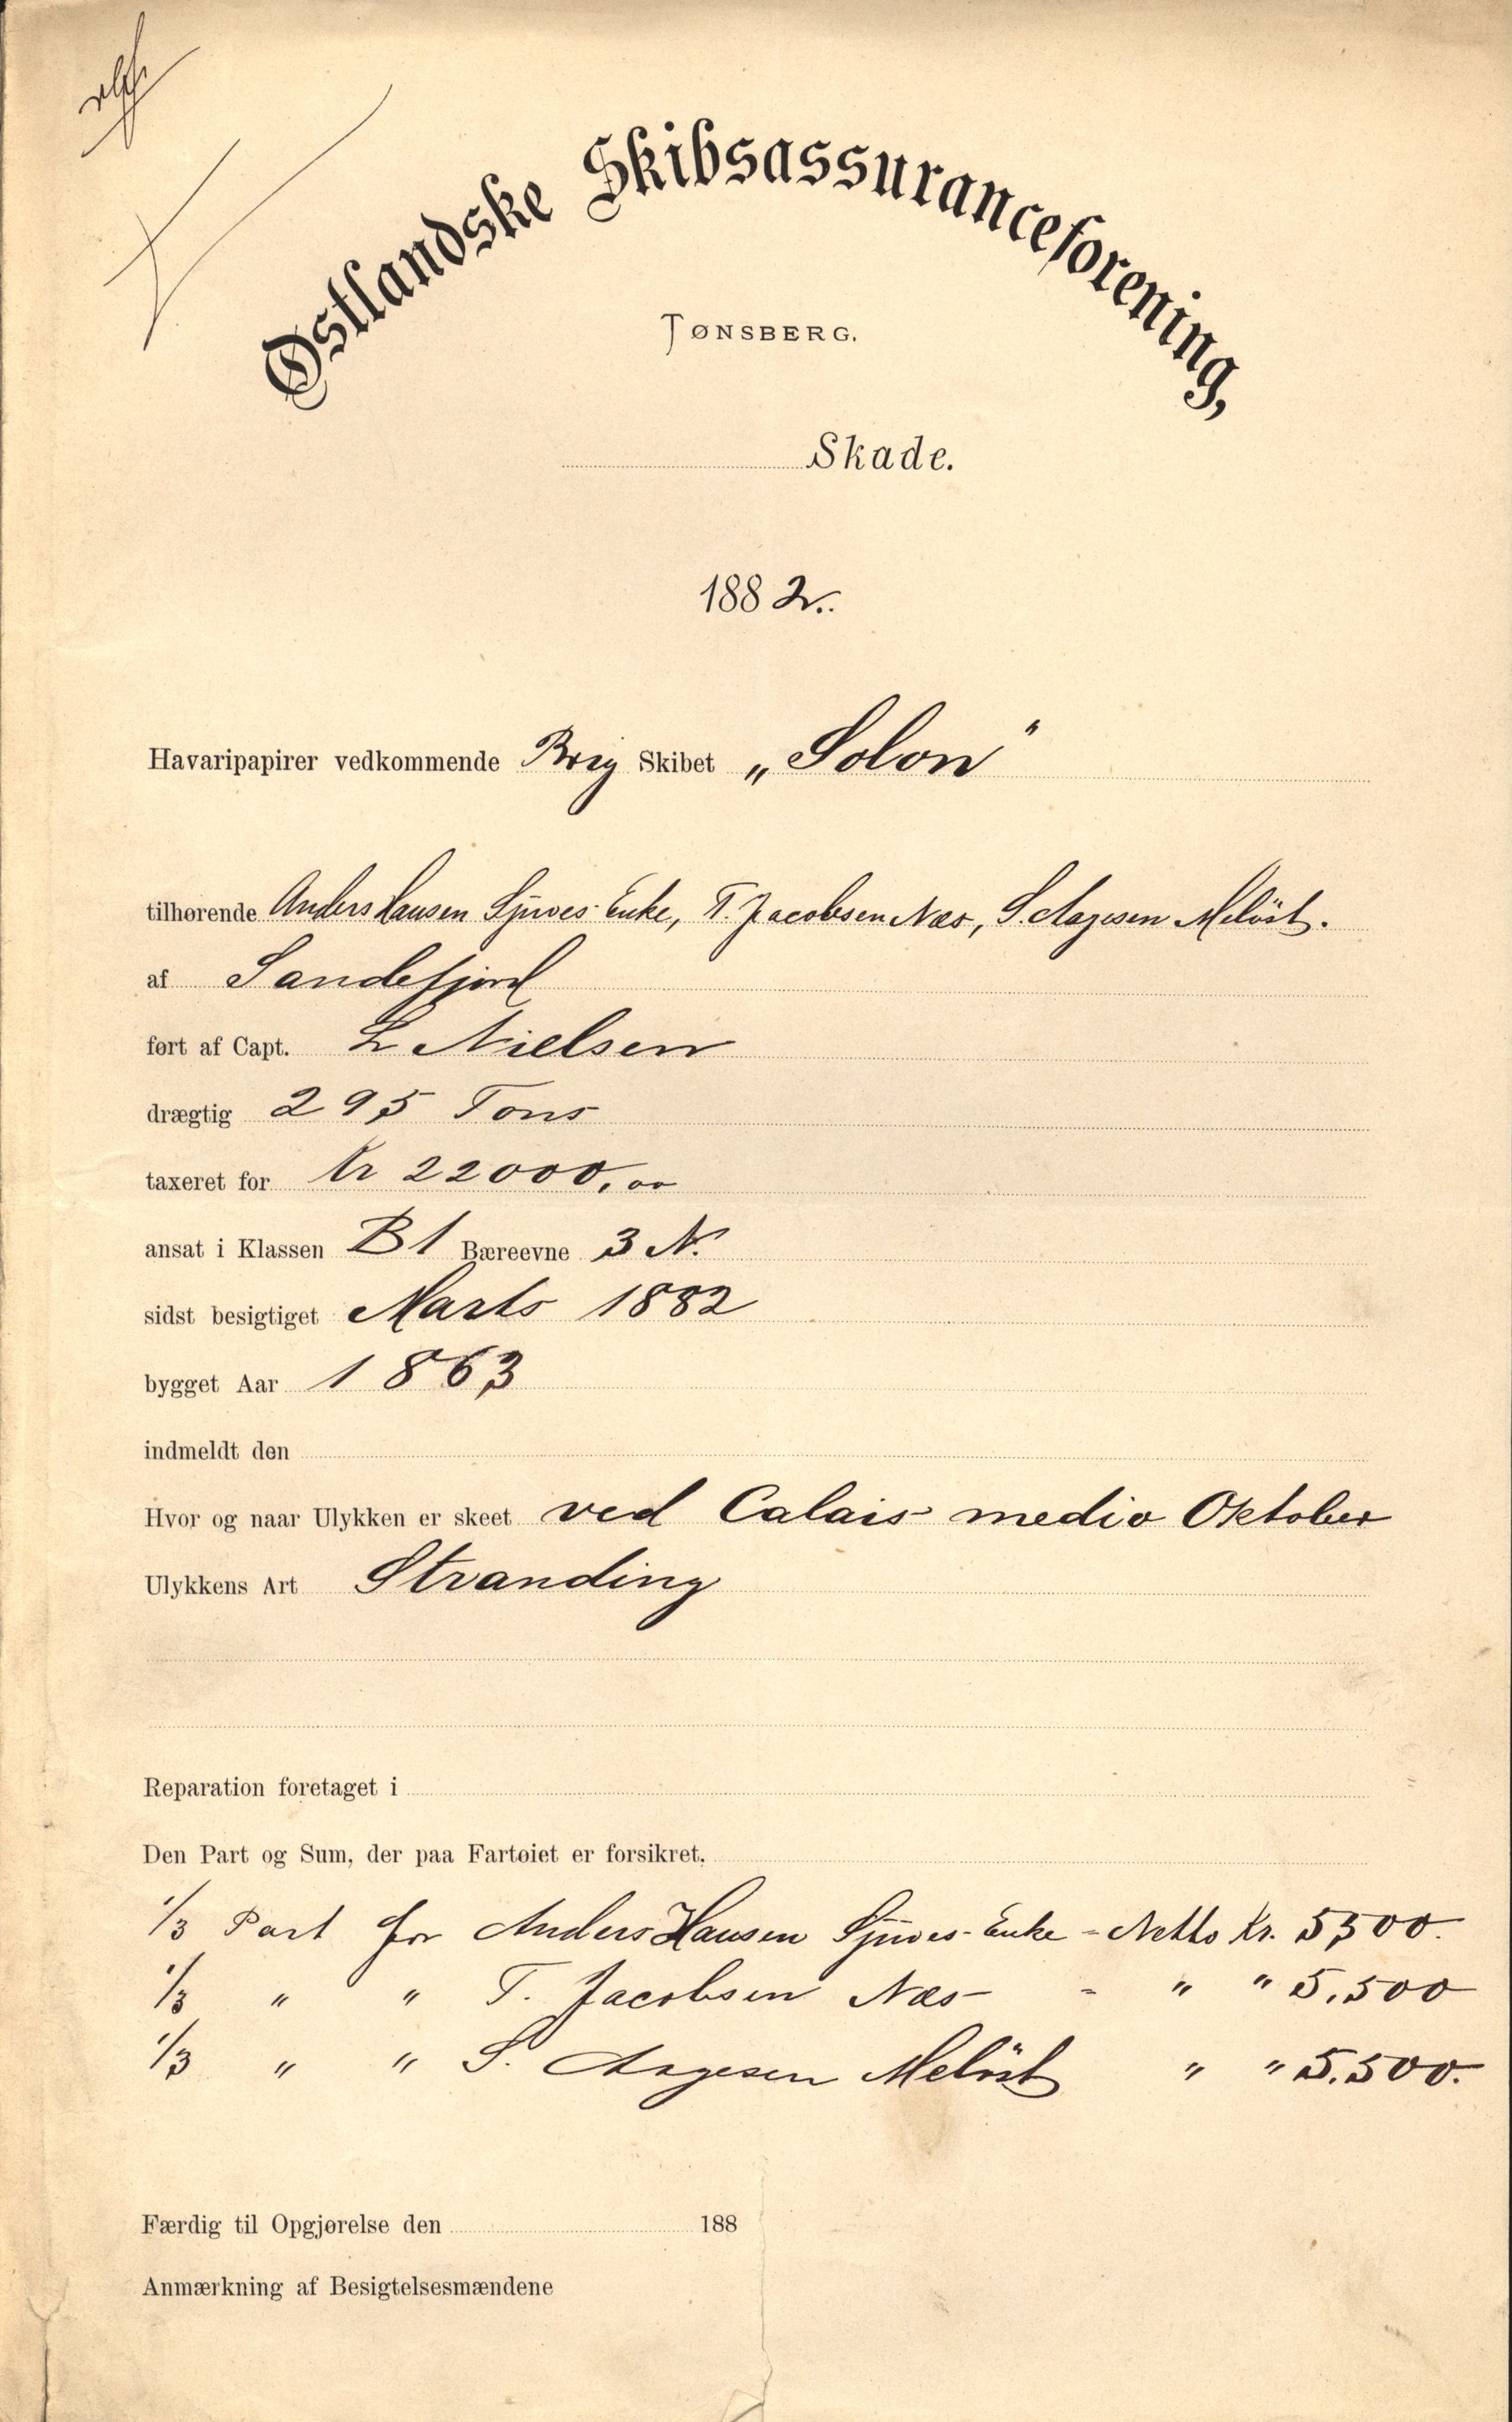 Østlandske Skibsassuranceforening,
TØNSBERG.
Skade.
1882.
Havaripapirer vedkommende Brig Skibet „Solon"
tilhørende Anders Hansen Sjuves Enke, T. Jacobsen Næs, S. Aagesen Meløst.
af Sandefjord
ført af Capt. L Nielsen
drægtig 295 Tons
taxeret for Kr 22000,00
ansat i Klassen B1 Bæreevne 3 N.
sidst besigtiget Marts 1882
bygget Aar 1863
indmeldt den
Hvor og naar Ulykken er skeet ved Calais medio Oktober
Ulykkens Art Stranding
Reparation foretaget i
Den Part og Sum, der paa Fartøiet er forsikret.
1/3 Part for Anders Hansen Sjuves Enke - Netto Kr. 5500.
1/3 " " T. Jacobsen Næs - " " 5.500
1/3 " " S. Aagesen Meløst " " 5.500.
Færdig til Opgjørelse den 188
Anmærkning af Besigtelsesmændene